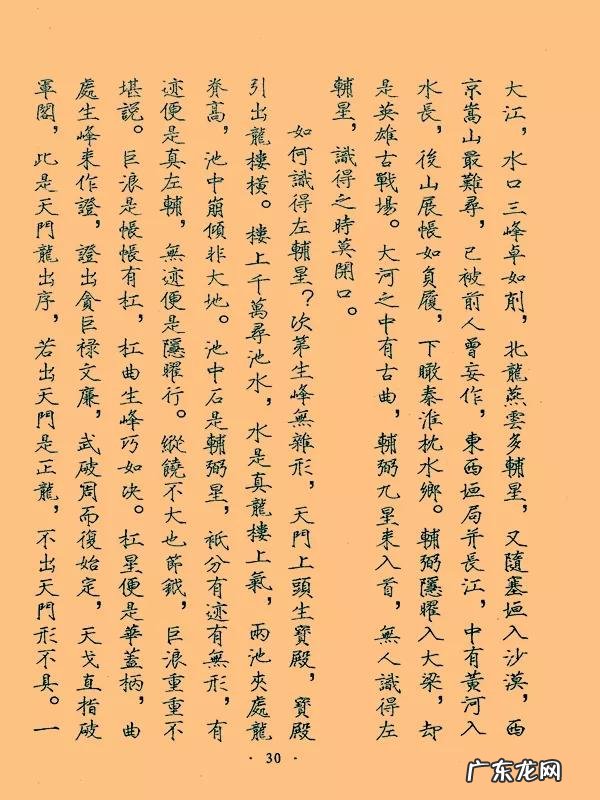 大江，水口三峰卓如削，北龍燕雲多輔星，又隨塞垣入沙漠，西
京嵩山最難尋，已被前人曾妄作，東西垣局并長江，中有黄河入
水長，後山展帳如負扆，下瞰秦淮枕水鄉。輔弼隱曜入大梁，却
是英雄古戰場。大河之中有古曲，輔弼九星来入首，無人識得左
輔星，識得之時莫開口。
如何識得左輔星？次第生峰無雜形，天門上頭生寶殿，寶殿
引出龍樓橫。樓上千萬尋池水，水是真龍樓上氣，兩池夾處龍
脊高，池中崩傾非大地。池中石是輔弼星，祇分有迹有無形，有
迹便是真左輔，無迹便是隱曜行。縱饒不大也節鉞，巨浪重重不
堪說。巨浪是帳帳有杠，杠曲生峰巧如决。杠星便是華蓋柄，曲
處生峰来作證，證出貪巨禄文廉，武破周而復始定，天戈直指破
軍閣，此是天門龍出序，若出天門是正龍，不出天門形不具。一
·30·
广东龙网